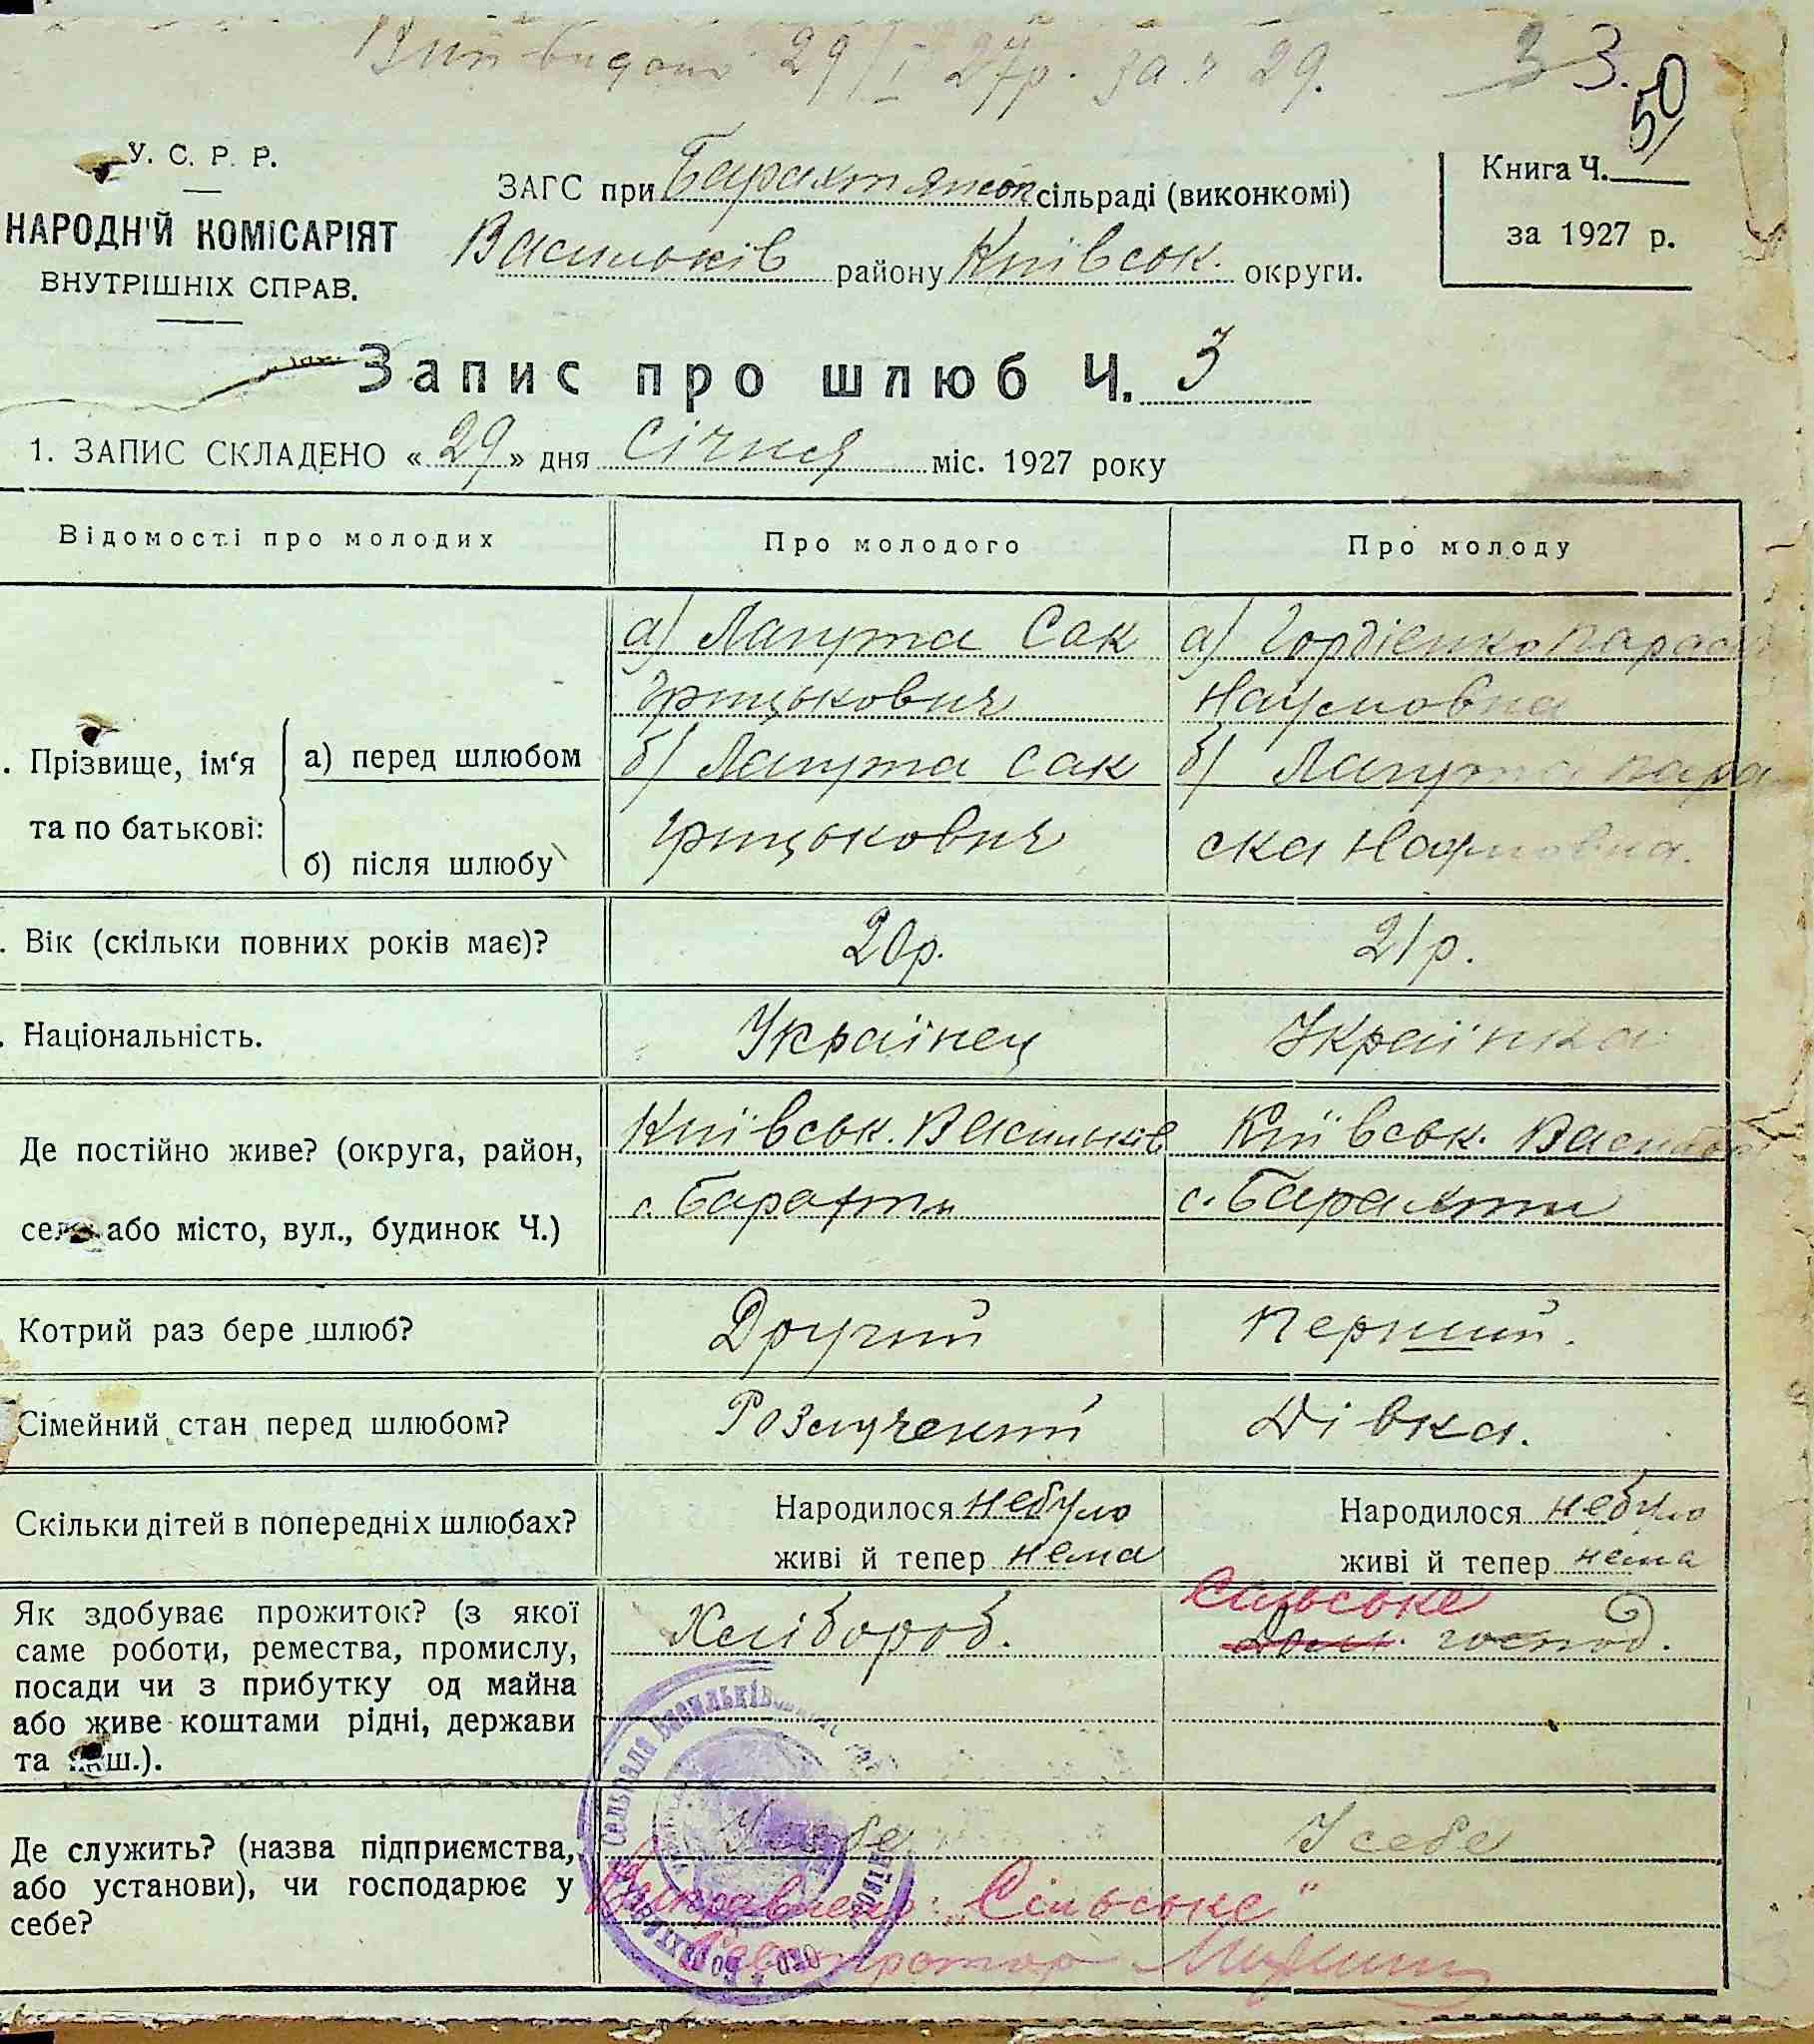 видано 29/I 27р. за ч 29.
3 3.
50
У. С. Р. Р.
НАРОДНІЙ КОМІСАРІЯТ
ВНУТРІШНІХ СПРАВ.
ЗАГС при Барахтянськ сільраді (виконкомі)
Васильків району Київськ. округи.
Книга Ч.
за 1927 р.
Запис про шлюб Ч. 3
1. ЗАПИС СКЛАДЕНО « 29 » дня Січня міс. 1927 року
Відомості про молодих
Про молодого
Про молоду
. Прізвище, ім‘я та по батькові:
а) перед шлюбом
б) після шлюбу
а) Лапута Сак
Грицькович
б) Лапута Сак
Грицькович
а) Гордієнко Парас
Наумовна
б) Лапута Пара
ска Наумовна.
. Вік (скільки повних років має)?
20р.
21р.
. Національність.
Українец
Українка
Де постійно живе? (округа, район,
село або місто, вул., будинок Ч.)
Київськ. Васильків
с. Барахти
Київськ. Васильк
с. Барахти
Котрий раз бере шлюб?
Другий
Перший.
Сімейний стан перед шлюбом?
Розлучений
Дівка.
Скільки дітей в попередніх шлюбах?
Народилося небуло
живі й тепер нема
Народилося небуло
живі й тепер нема
Як здобуває прожиток? (з якої
саме роботи, ремества, промислу,
посади чи з прибутку од майна
або живе коштами рідні, держави
та инш.).
Хлібороб.
Сільське
Дом. господ.
Де служить? (назва підприємства,
або установи), чи господарює у
себе?
У себе
У себе
Виправлено: „Сільське“